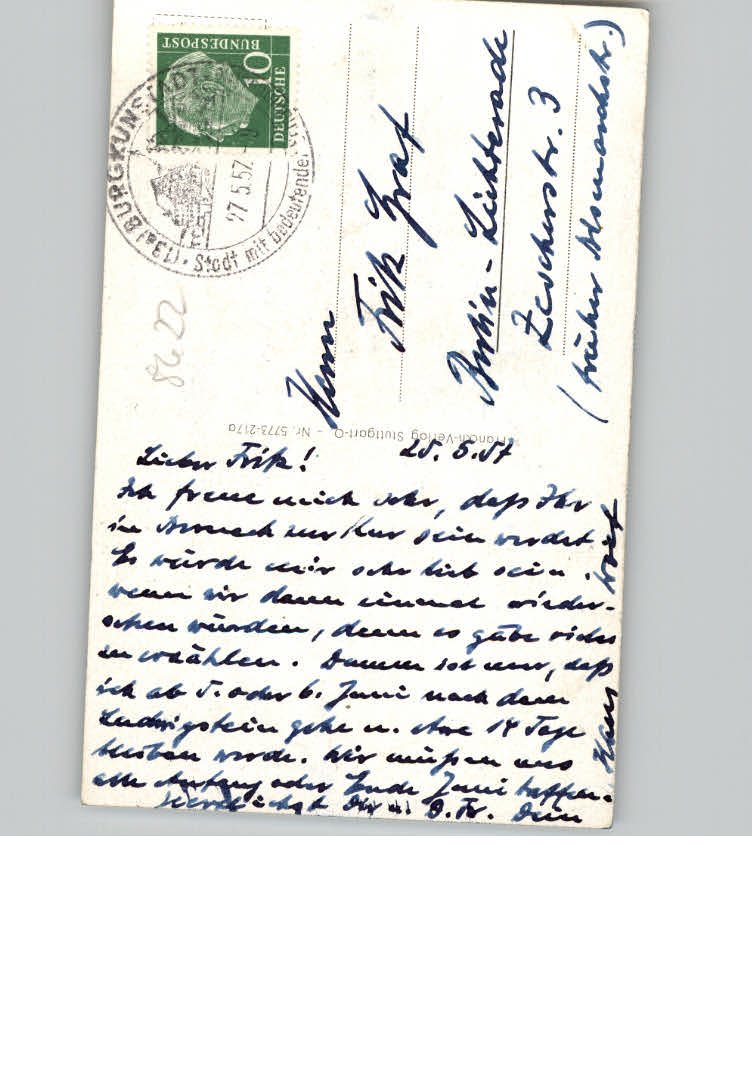 DEUTSCHE
BUNDESPOST
10
(13a) BURGKUNSTADT
27.5.57
Stadt mit bedeutender
8622
Herrn
Fritz Graf
Berlin-Lichtenrade
Zescherstr. 3
(früher Bismarckstr.)
Franckh-Verlag Stuttgart-O. – Nr. 5773-217a
25.5.57
Lieber Fritz!
Ich freue mich sehr, daß Ihr
in zur Kur sein werdet.
Es würde mir sehr lieb sein,
wenn wir dann einmal wieder-
sehen würden, denn es gäbe vieles
zu erzählen. Dumm ist nur, daß
ich ab 5. oder 6. Juni nach dem
Ludwigstein gehe u. etwa 14 Tage
bleiben werde. Wir müßen uns
also Anfang oder Ende Juni treffen.
herzlichst Dir u. D. Fr. Dein
Hans Wolf